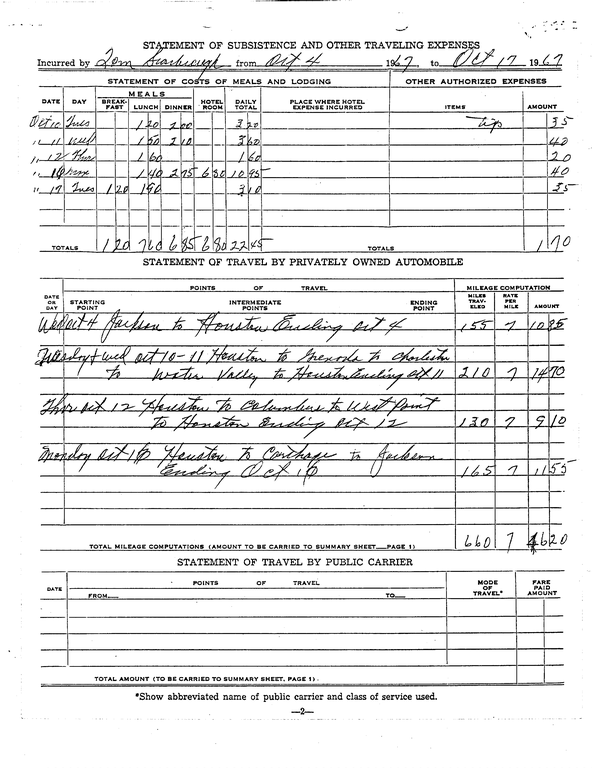 STATEMENT OF SUBSISTENCE AND OTHER TRAVELING EXPENSES
Incurred by Tom Scarbrough from Oct 4 1967 to Oct 17 1967
STATEMENT OF COSTS OF MEALS AND LODGING OTHER AUTHORIZED EXPENSES
DATE DAY MEALS BREAKFAST LUNCH DINNER HOTEL ROOM DAILY TOTAL PLACE WHERE HOTEL EXPENSE INCURRED ITEMS AMOUNT
Oct 10 Tues 1 20 2 00 3 20 tips 35
" 11 Wed 1 50 2 10 3 60 40
" 12 Thur 1 60 1 60 20
" 16 1 40 2 75 6 80 10 95 40
" 17 Tues 1 20 1 90 3 10 35
TOTALS 1 20 7 60 6 85 6 80 22 45 TOTALS 1 70
STATEMENT OF TRAVEL BY PRIVATELY OWNED AUTOMOBILE
DATE OR DAY POINTS OF TRAVEL MILEAGE COMPUTATION
STARTING POINT INTERMEDIATE POINTS ENDING POINT MILES TRAVELED RATE PER MILE AMOUNT
Wed Oct 4 Jackson to Houston Ending Oct 4 155 7 10 85
Tuesday & Wed Oct 10-11 Houston to Grenada to Charleston
to Water Valley to Houston Ending Oct 11 210 7 14 70
Thur Oct 12 Houston to Columbus to West Point
to Houston Ending Oct 12 130 7 9 10
Monday Oct 16 Houston to Carthage to Jackson
Ending Oct 16 165 7 11 55
TOTAL MILEAGE COMPUTATIONS (AMOUNT TO BE CARRIED TO SUMMARY SHEET—PAGE 1) 660 7 46 20
STATEMENT OF TRAVEL BY PUBLIC CARRIER
DATE POINTS OF TRAVEL MODE OF TRAVEL* FARE PAID AMOUNT
FROM— TO—
TOTAL AMOUNT (TO BE CARRIED TO SUMMARY SHEET, PAGE 1)
*Show abbreviated name of public carrier and class of service used.
—2—